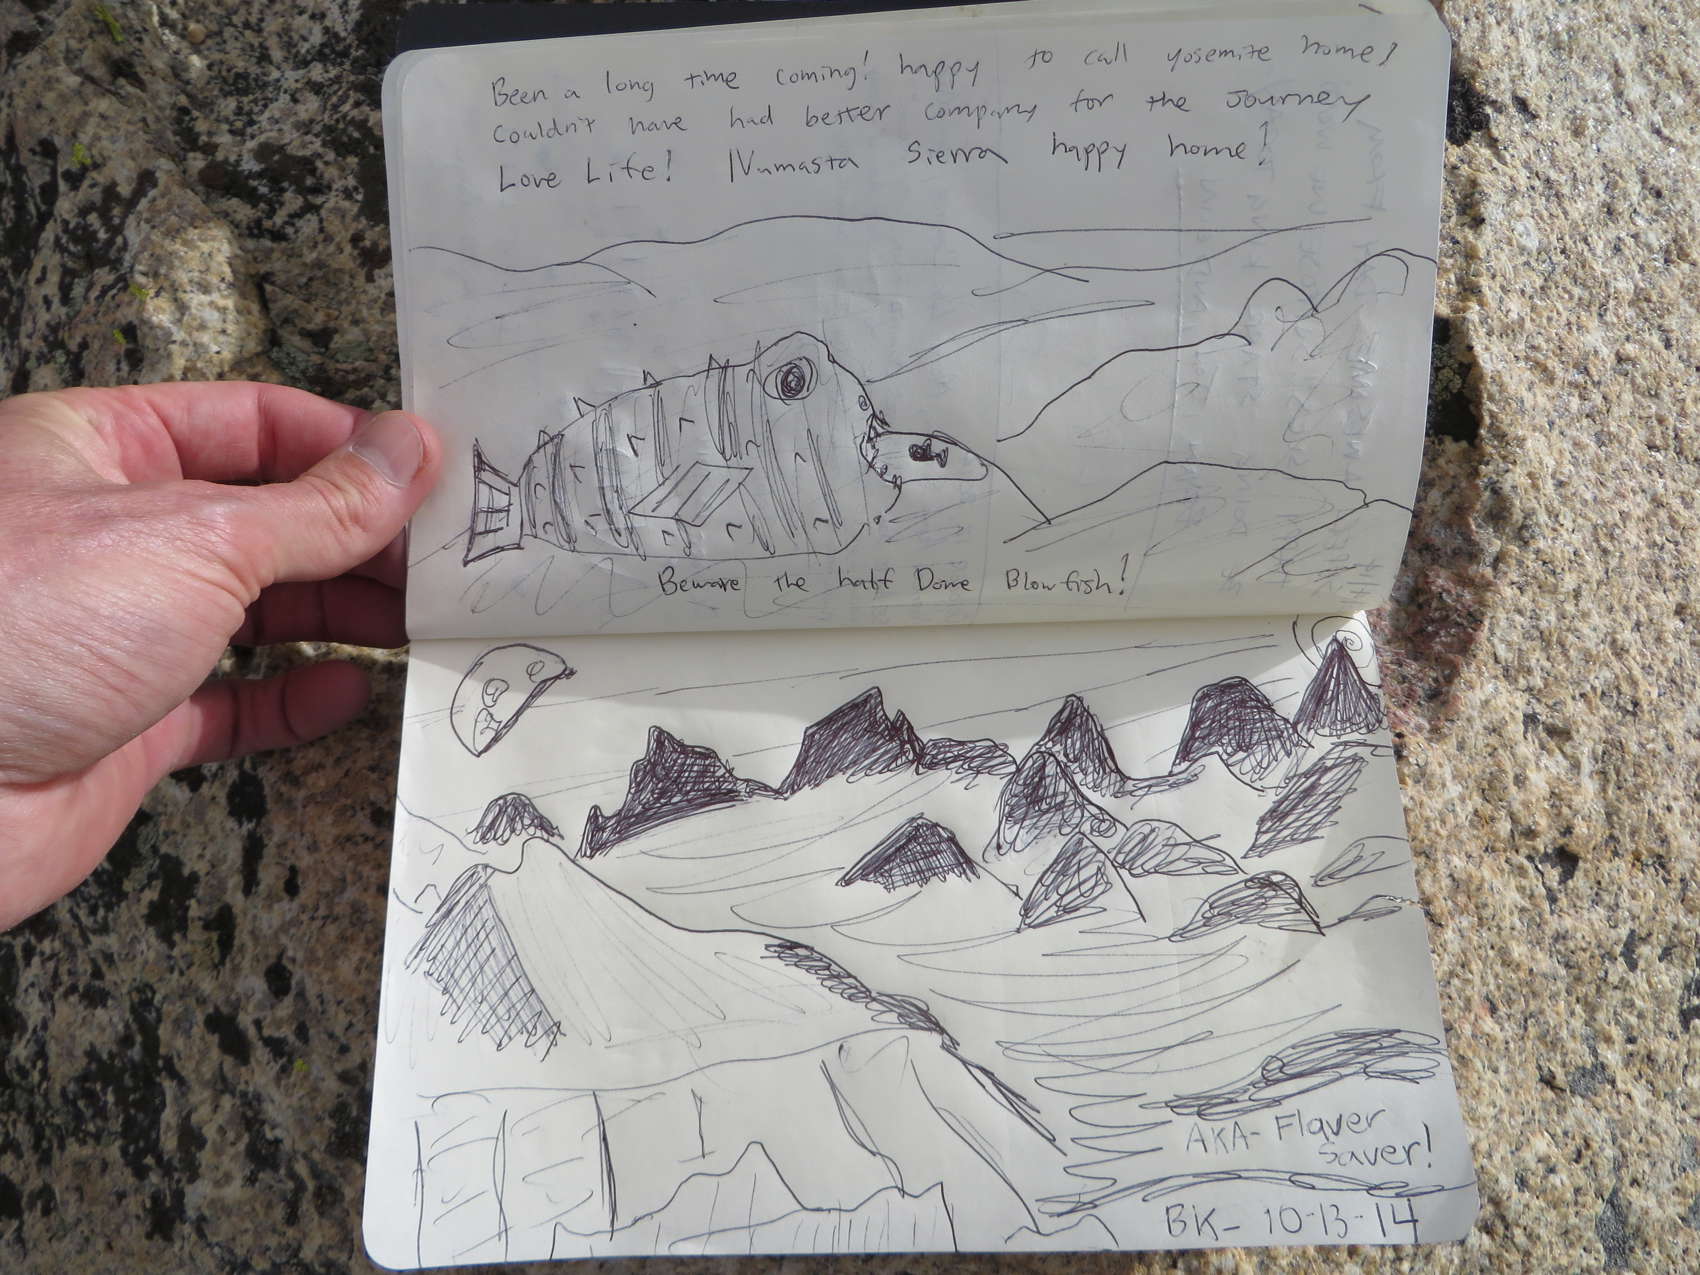 Been a long time coming! happy to call yosemite home!
Couldn't have had better company for the Journey
Love Life! Numasta Sierra happy home!
Beware the half Dome Blowfish!
AKA- Flaver
Saver!
BK- 10-13-14